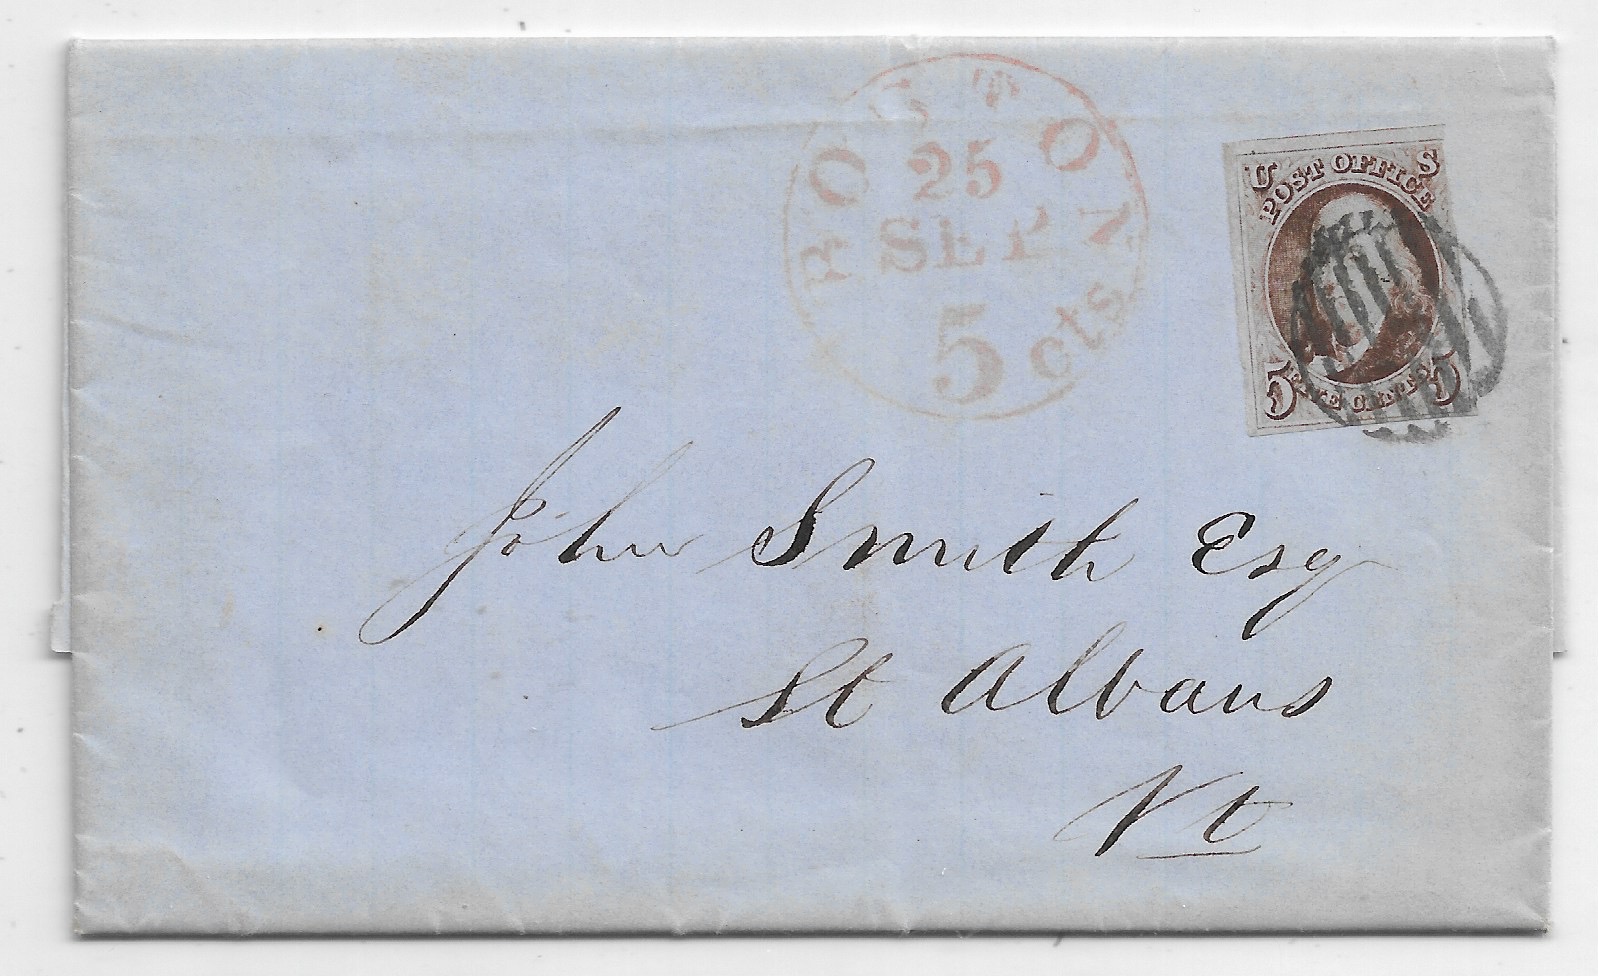 BOSTON
25
SEP
5 cts
U S
POST OFFICE
5 FIVE CENTS 5
John Smith Esq
St Albans
Vt